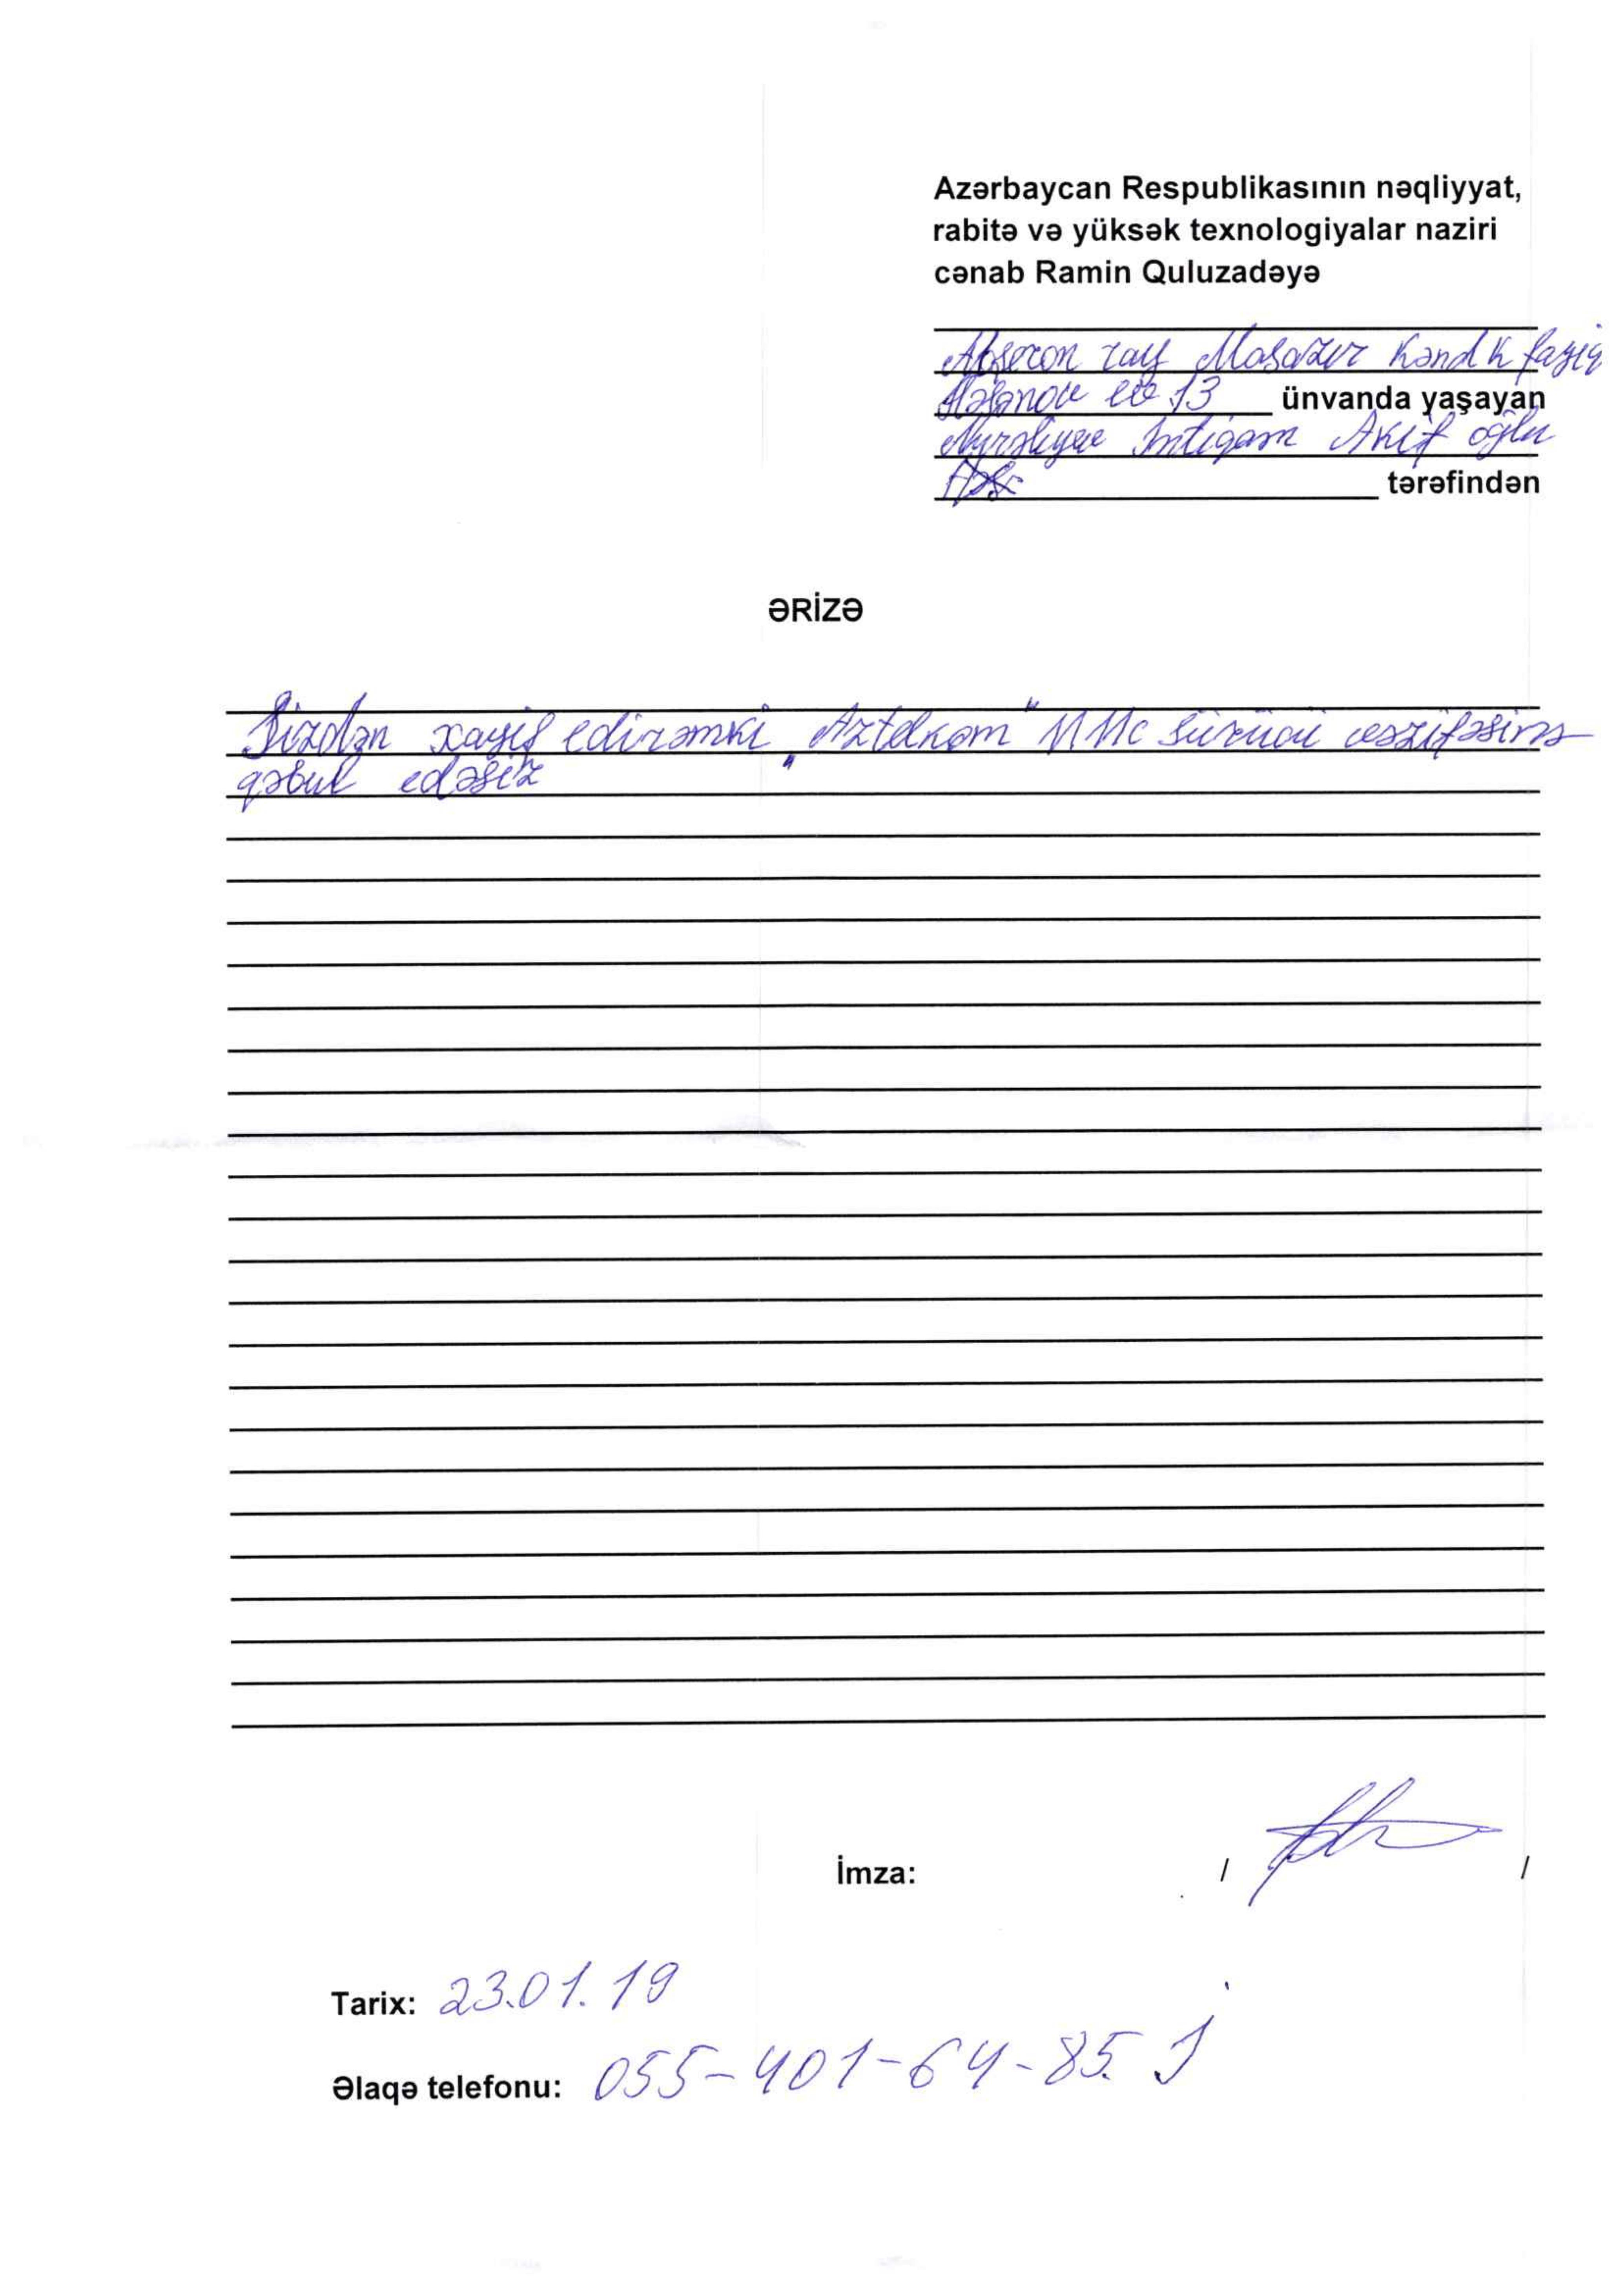 Azərbaycan Respublikasının nəqliyyat,
rabitə və yüksək texnologiyalar naziri
cənab Ramin Quluzadəyə
Abşeron ray Masazır kənd k fayiq
ev 13 ünvanda yaşayan
Nurəliyev İntiqam Akif oğlu
tərəfindən
ƏRİZƏ
Sizdən xayiş edirəmki „Aztelkom" MMC sürücü vəzifəsinə
qəbul edəsiz
İmza: / /
Tarix: 23.01.19
Əlaqə telefonu: 055-401-64-85.